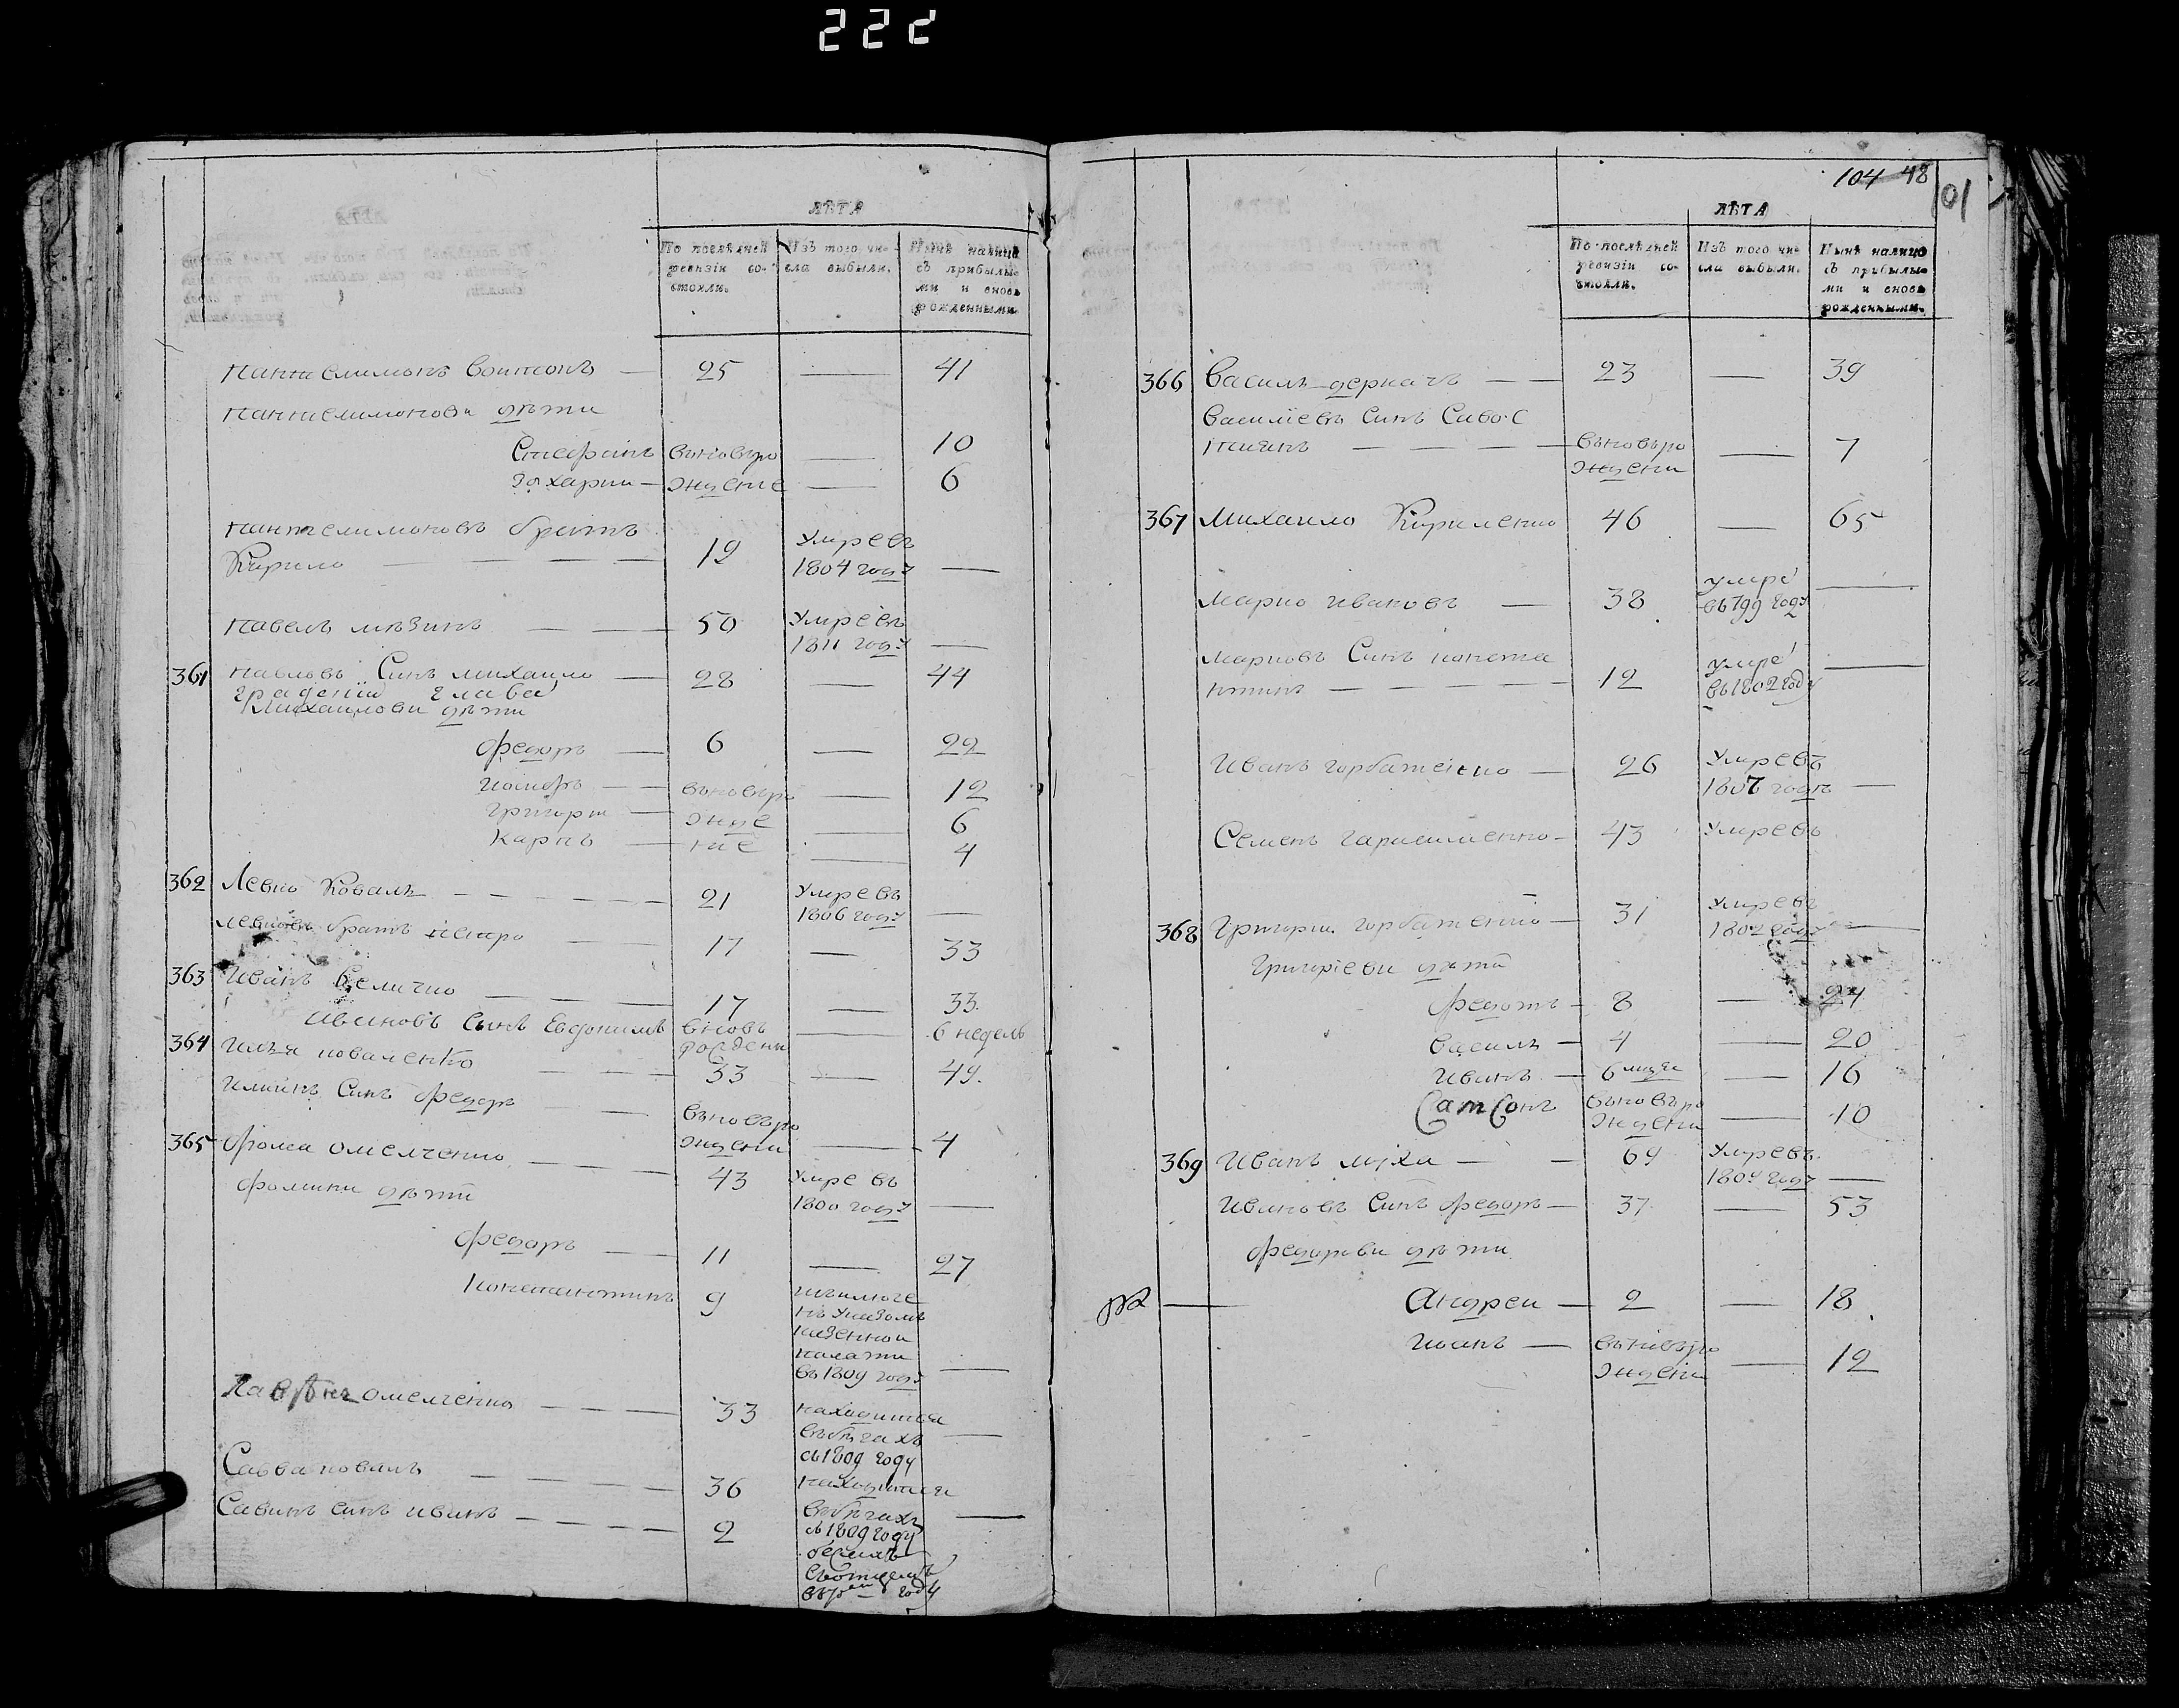 222
ЛѢТА
По послѣдней ревизіи со- стояли.
Изъ того чи- сла выбыли.
Нынѣ налицо съ прибылы- ми и вновь рожденными.
Пантелимонъ воитонъ — 25 — 41
Пантелимонови дѣти
Стефанъ вьновьро — 10
Захарии — жденіе — 6
Пантелимоновъ братъ
Кирило — — — 19 Умре въ 1804 году —
Павелъ мѣзинъ — — 50 Умре въ 1811 году —
361 Павловъ Синъ михаило — 28 — 44
градский глава
Михаилови дѣти
Федоръ — 6 — 22
Иосифъ — вьновьро — 12
Григории — жде — 6
Карпъ — ние — 4
362 Левко Коваль — — — 21 Умре въ 1806 году —
Левковъ братъ петро — 17 — 33
363 Иванъ Величко — — — 17 — 33.
Ивановъ Сынъ Евдокимъ вновь рожденн — 6 недель
364 Илья коваленко — — 33 — 49.
Илиинъ Синъ Федоръ — — вьновьро ждени — 4
365 Фома омелченко — — — 43 Умре въ 1800 году —
Фомини дѣти
Федоръ — 11 — 27
Константинъ 9
указомъ
казенной
палати
въ 1809 году —
омелченко — — — 33 находится
въ бѣгахъ —
съ 1809 году
Савва коваль — — — 36 находится
Савинъ синъ иванъ — — — 2 въ бѣгахъ —
съ 1809 году
году
104 48
101
ЛѢТА
По послѣдней ревизіи со- стояли.
Изъ того чи- сла выбыли.
Нынѣ налицо съ прибылы- ми и вновь рожденными.
366 Василь дергачъ — — 23 — 39
Василіевъ Синъ Сава С
тиянъ — — — вьновьро — 7
ждени
367 Михаило Кириленко 46 — 65
Марко ивановъ — 38 умре въ 799 году —
Марковъ Синъ конста
нтинъ — — — — 12 умре въ 1802 году —
Иванъ горбатенко — 26 Умре въ 1807 годѣ —
Семенъ гарасименко — 43 Умре въ
368 Григории горбатенко — 31 Умре въ 1802 году —
Григоріеви дѣти
Федотъ — 8 — 24
Василь — 4 — 20
Иванъ — 6 мцъя — 16
Самсонъ вьновьро ждени — 10
369 Иванъ муха — — 69 Умре въ 1804 году —
Ивановъ Синъ Федоръ — 37 — 53
Федорови дѣти
Андреи — 2 — 18.
Иванъ — вьновьро ждени — 12